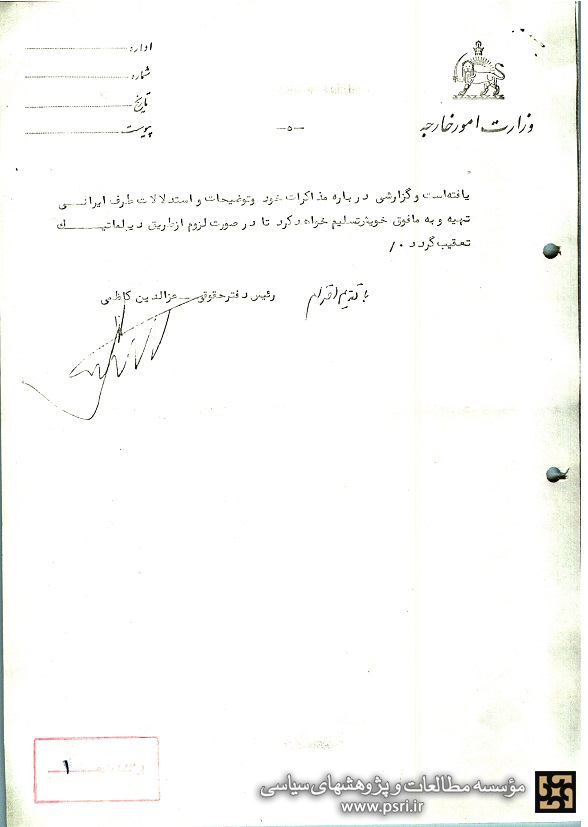 وزارت امور خارجه
اداره
شماره
تاریخ
پیوست
—۵—
یافته‌است و گزارشی درباره مذاکرات خود وتوضیحات و استدلالات طرف ایرانـــی
تهیه و به مافوق خویش‌تسلیم خواهد کرد تا در صورت لزوم ازطریق دیپلماتیــــک
تعقیب گردد ۰/
با تقدیم احترام
رئیس دفترحقوقی ـ عزالدین کاظمی
۱
مؤسسه مطالعات و پژوهشهای سیاسی
www.psri.ir